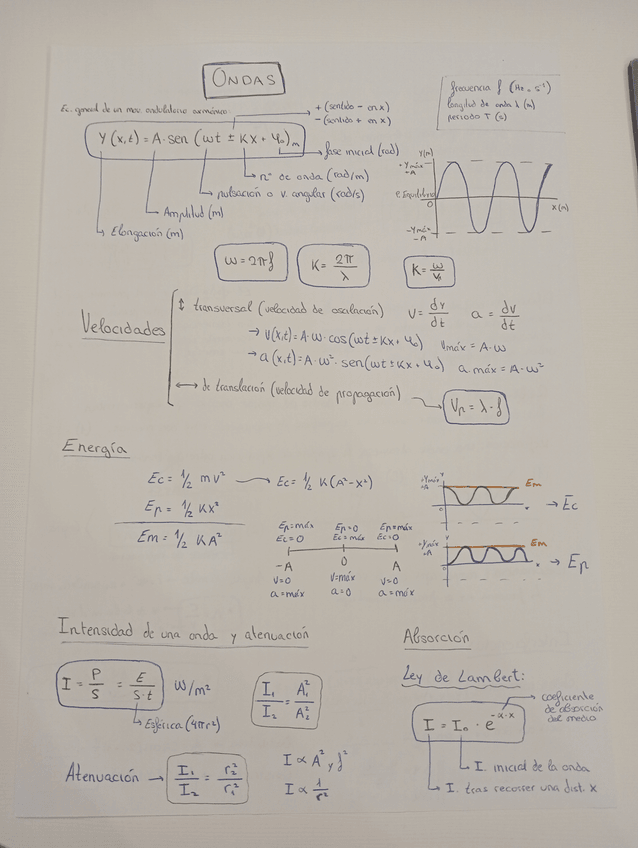 ONDAS
Ec. general de un mov. ondulatorio armónico
+ (sentido - en x)
- (sentido + en x)
frecuencia f (Hz = s⁻¹)
longitud de onda λ (m)
periodo T (s)
Y(x,t) = A · sen (ωt ± Kx + φ₀) m
fase inicial (rad)
nº de onda (rad/m)
pulsación o v. angular (rad/s)
Amplitud (m)
Elongación (m)
Y(m)
+Ymáx
+A
e. Equilibrio
0
-Ymáx
-A
x (m)
ω = 2πf
K = 2π/λ
K = ω/Vp
Velocidades
↕ transversal (velocidad de oscilación) V = dy/dt a = dv/dt
→ V(x,t) = A · ω · cos(ωt ± Kx + φ₀) Vmáx = A · ω
→ a(x,t) = A · ω² · sen(ωt ± Kx + φ₀) a máx = A · ω²
↔ de translación (velocidad de propagación) → Vp = λ · f
Energía
Ec = 1/2 mv² → Ec = 1/2 K(A² - x²)
Ep = 1/2 Kx²
Em = 1/2 KA²
Ep=máx Ep=0 Ep=máx
Ec=0 Ec=máx Ec=0
-A 0 A
V=0 V=máx V=0
a=máx a=0 a=máx
+Ymáx
+A
Y
Em
0
x
→ Ec
+Ymáx
+A
Y
Em
0
x
→ Ep
Intensidad de una onda y atenuación
I = P/S = E/S·t W/m²
Esférica (4πr²)
I₁/I₂ = A₁²/A₂²
Atenuación → I₁/I₂ = r₂²/r₁²
I ∝ A² y f²
I ∝ 1/r²
Absorción
Ley de Lambert:
I = I₀ · e^-α·x
coeficiente
de absorción
del medio
I. inicial de la onda
I. tras recorrer una dist. x